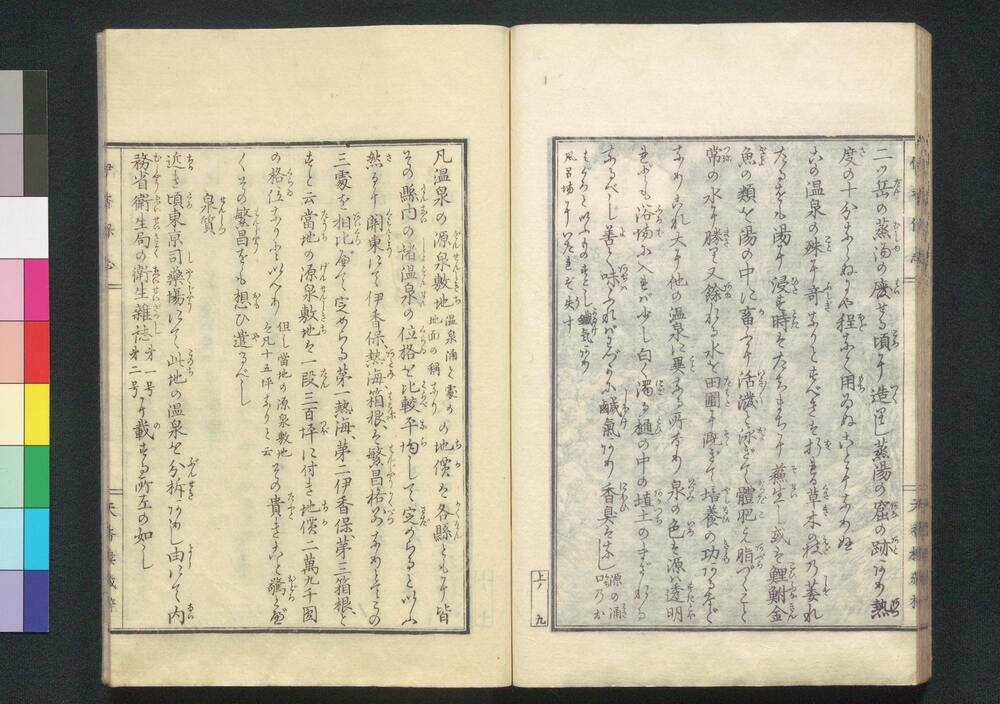 二ツ岳の蒸湯の廢せる頃に造里し蒸湯の窟の跡あり熱
度の十分ならぬにや程なく用ゐぬことになりぬ
この温泉の殊に奇なりとすべきは打する草木の枝乃萎れ
たるをも湯に浸す時はたちまちに蘇生し或は鯉鮒金
魚の類を湯の中に畜ふに活溌に泳ぎて體肥え脂づくこと
常の水に勝り又餘れる水を田圃に漑ぎて培養の功ある
なりこれ大に他の温泉に異なる所なり泉の色は源は透明
なれども浴場に入れば少し白く濁る樋の中の埴土のまじれる
なるべし善く味ふればわづかに鹹氣あり香臭はなし源の涌口乃か
すかに鐵氣あり
風呂場にいたれば失す
上ノ九
凡温泉の源泉敷地温泉涌く處の地面の稱なりの地價は各縣ともに皆
その縣内の諸温泉の位格を比較平均して定めらると以ふ
然るに関東にて伊香保熱海箱根は繁昌格別なりとてこの
三處を相比べて定めらる第一熱海、第二伊香保、第三箱根、と
すと云當地の源泉敷地は一段三百坪に付き地價二萬九千圓
の格位なりと以へり但し當地の源泉敷地は凡十五坪なりと云その貴きこと驚くべ
くその繁昌をも想ひ遣るべし
泉質
近き頃東京司藥場にて此地の温泉を分析ありし由にて内
務省衛生局の衛生雜誌第一号第二号に載する所左の如し